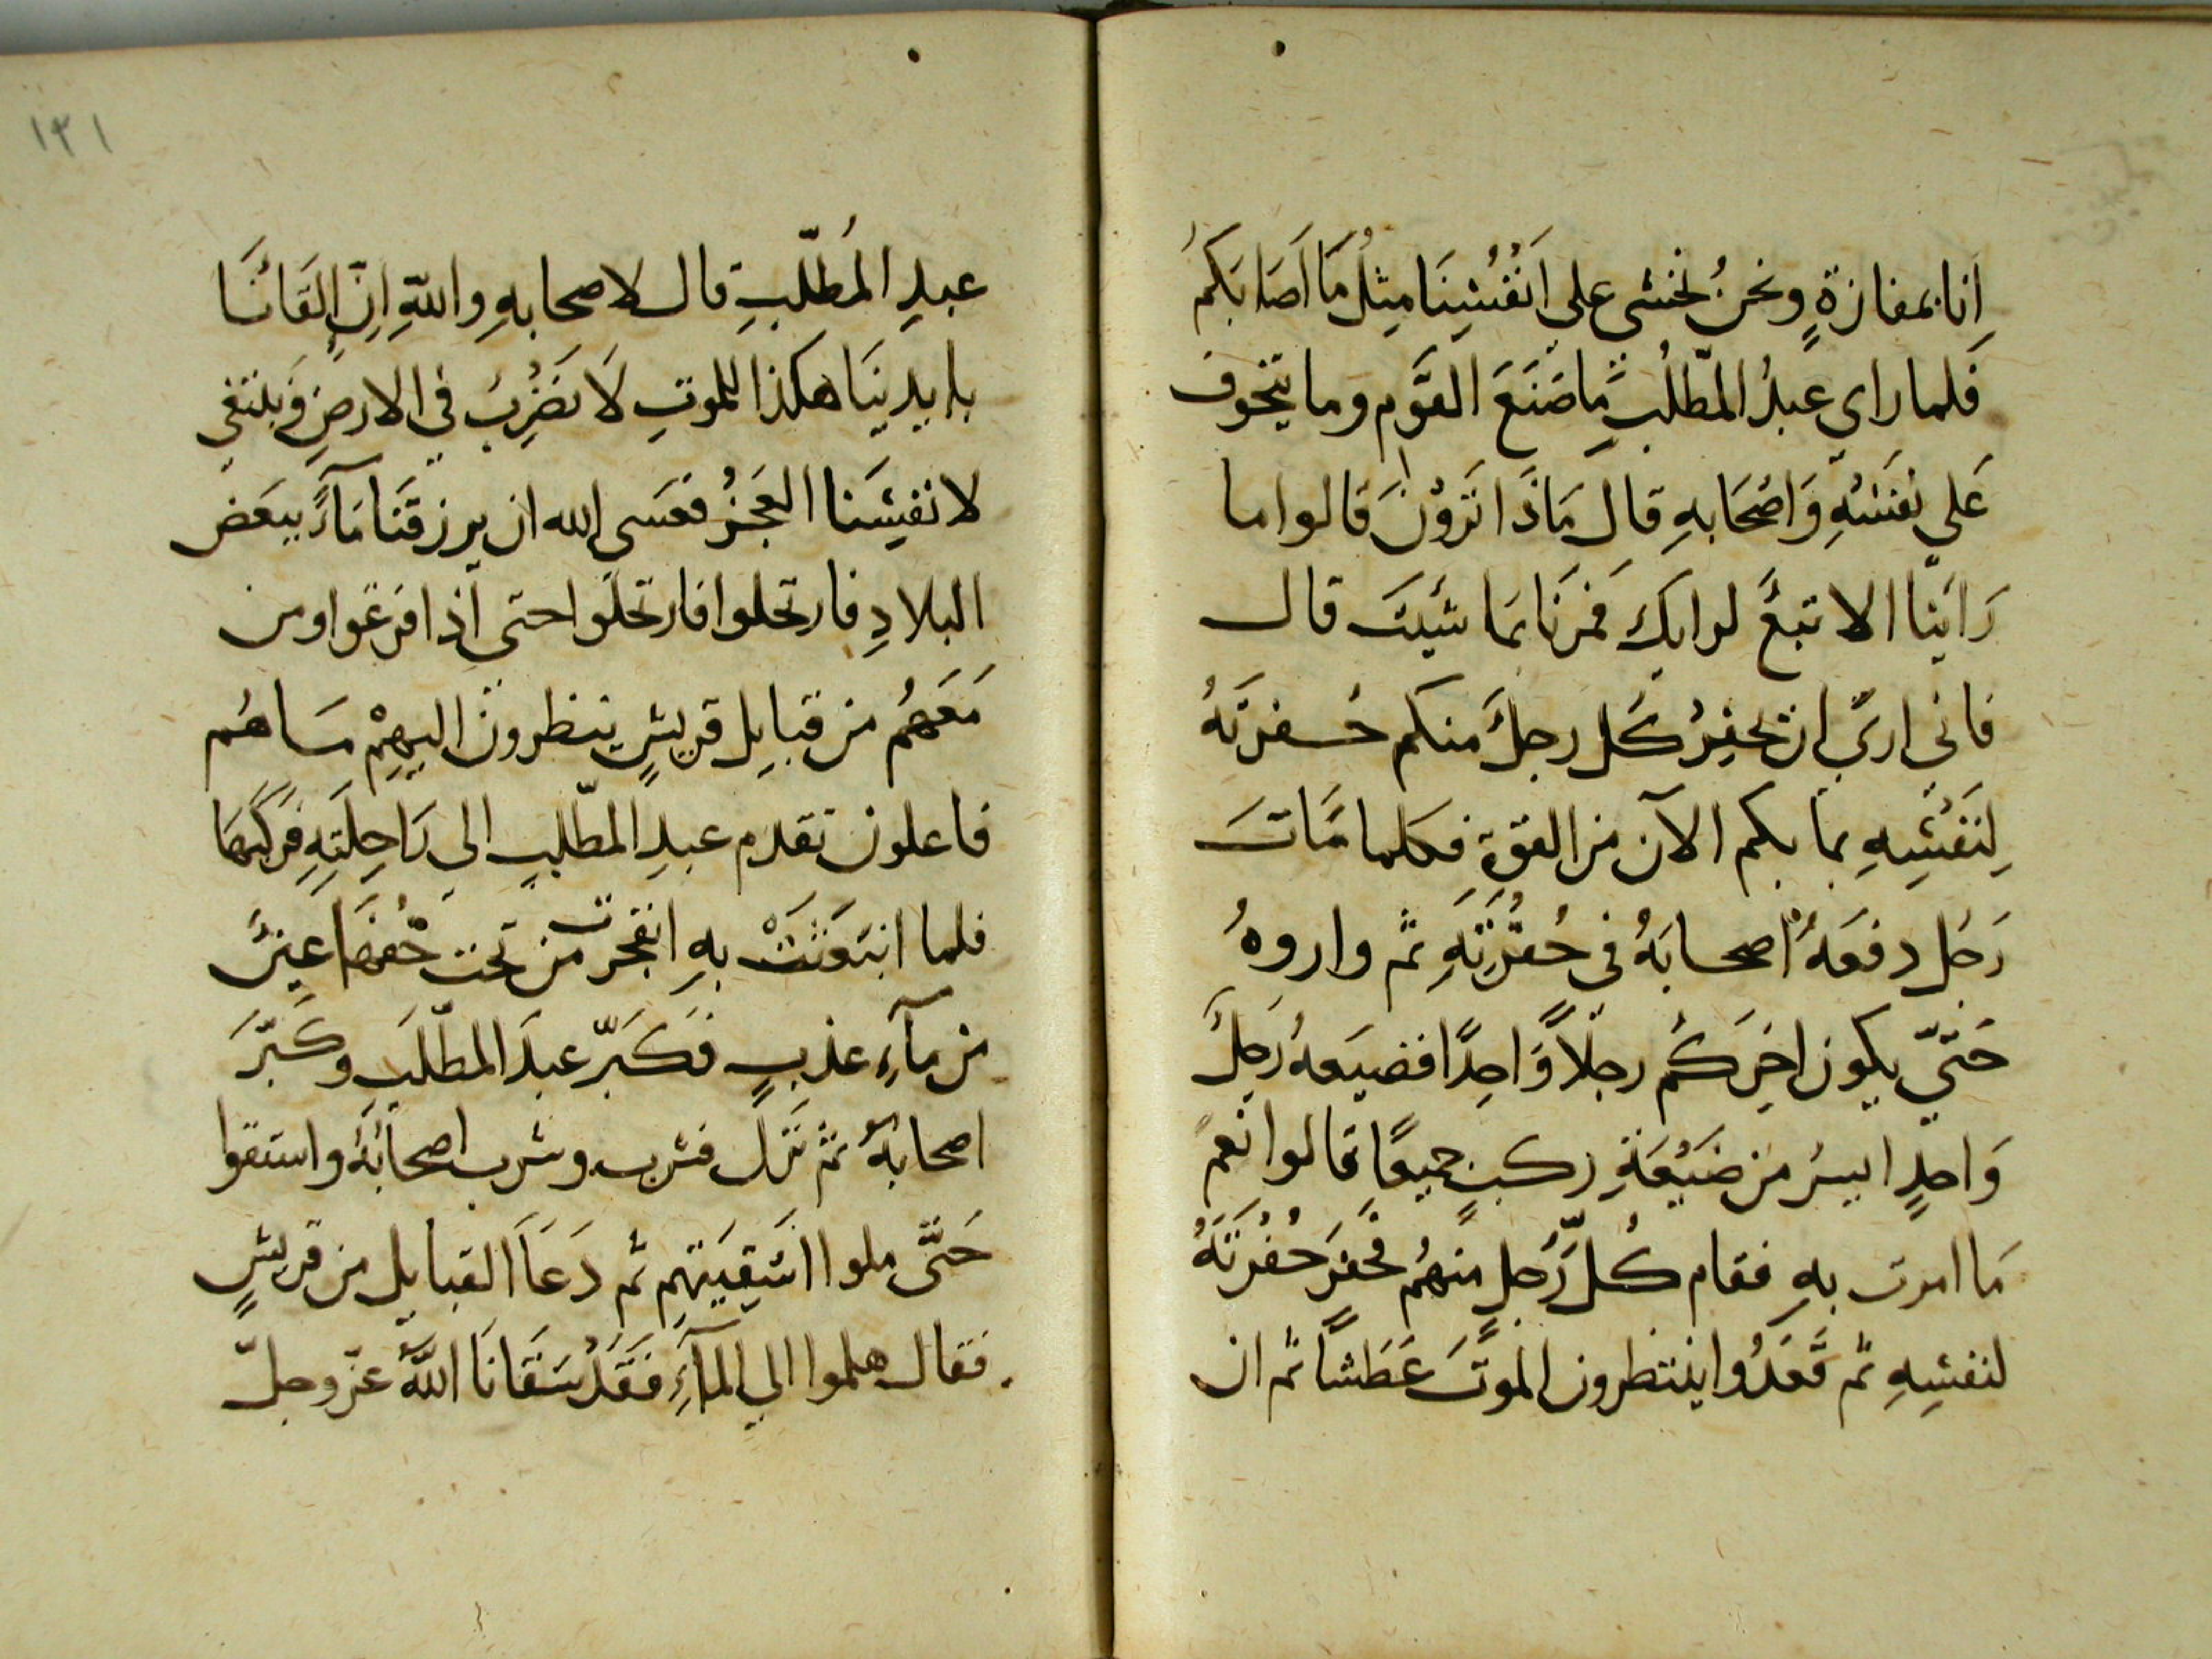 انا بمفازةٍ ونحنُ نخشى علي اَنْفُسِنَا مِثلُ مَا اَصَابَكم
فَلما راي عبدُ المطّلبِ مَا صَنَعَ القوَّم وما يتخوف
عَلي نفسِهِ وَاصْحَابهِ قال مَاذَا تَرَوْنَ قالوا ما
رَاَيْنا الا تبعَّ لرايكَ فَمرنَا بمَا شيتَ قال
فاني اريَ ان يحفِرُ كَل رجلَ منكم حُفرَتَهُ
لِنَفْسِهِ بما بكم الآن من القوةِ فكلما مَّاتَ
رَجُل دفعَهُ اصحابَهُ في حُفْرَتِهِ ثم واروهُ
حَتّيَ يكون اخِرَكُم رجلاً وَّاحِدًا فضيعهُ رَجلَ
وَاحدٍ ايسرُ من ضَيْعَةِ ركبٍ جميعًا قالوا نَعمَ
مَا امرت بهِ فقام كُلّ رَجلٍ منهُم فحَفَرَ حُفْرَتَهُ
لنفسِهِ ثم قَعَدُوا ينتظرون الموتَ عَطَشاً ثم ان
١٣١
عبدِ المُطّلبِ قال لاصحابهِ واللهِ اِنّ اِلقَائنَا
بايديْنَا هكذا للموتِ لَا نَضْرِبُ في الارضِ وَنبتغي
لانفسِنَا العَجزُ فعَسَى الله ان يرزقَنَا مَآءً ببَعَض
البلادِ فارتحلوا فارتحَلوا حتى اذا فرغوا ومن
مَعَهُم من قبايل قريشٍ ينظرون اليهِمْ مَا هُم
فاعلون تقدم عبدِ المطّلبِ الي رَاحِلَتِهِ فرَكبَهَا
فلما انبَعَثَتْ بهِ انفجرت من تحت خُفهَا عينً
من مآءٍ عذبٍ فكَبَّرَ عبدَ المطّلبِ وكَبَّرَ
اصحابهُ ثم نَزَل فشرب وشرب اصحَابَهُ واستقوا
حَتَّى ملوا اسْقِيَتِهِم ثم دَعَا القبايل من قريشٍ
فقال هلموا الي المآءِ فَقَدْ سَقَانَا اللّهُ عَزّ وجلّ